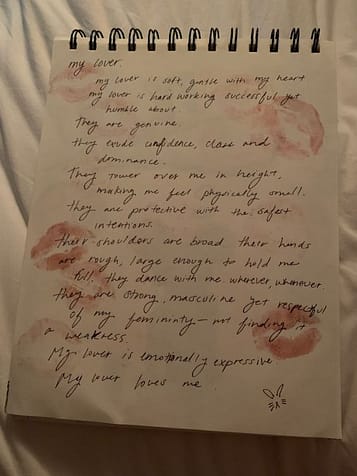 my lover.
my lover is soft, gentle with my heart
my lover is hard working successful yet
humble about
They are genuine.
they exude confidence, class and
dominance.
They tower over me in height,
making me feel physically small.
they are protective with the safest
intentions.
their shoulders are broad their hands
are rough, large enough to hold me
full. they dance with me wherever, whenever.
they are strong, masculine yet respectful
of my femininty — not finding it
a weakness.
My lover is emotionally expressive
My lover loves me